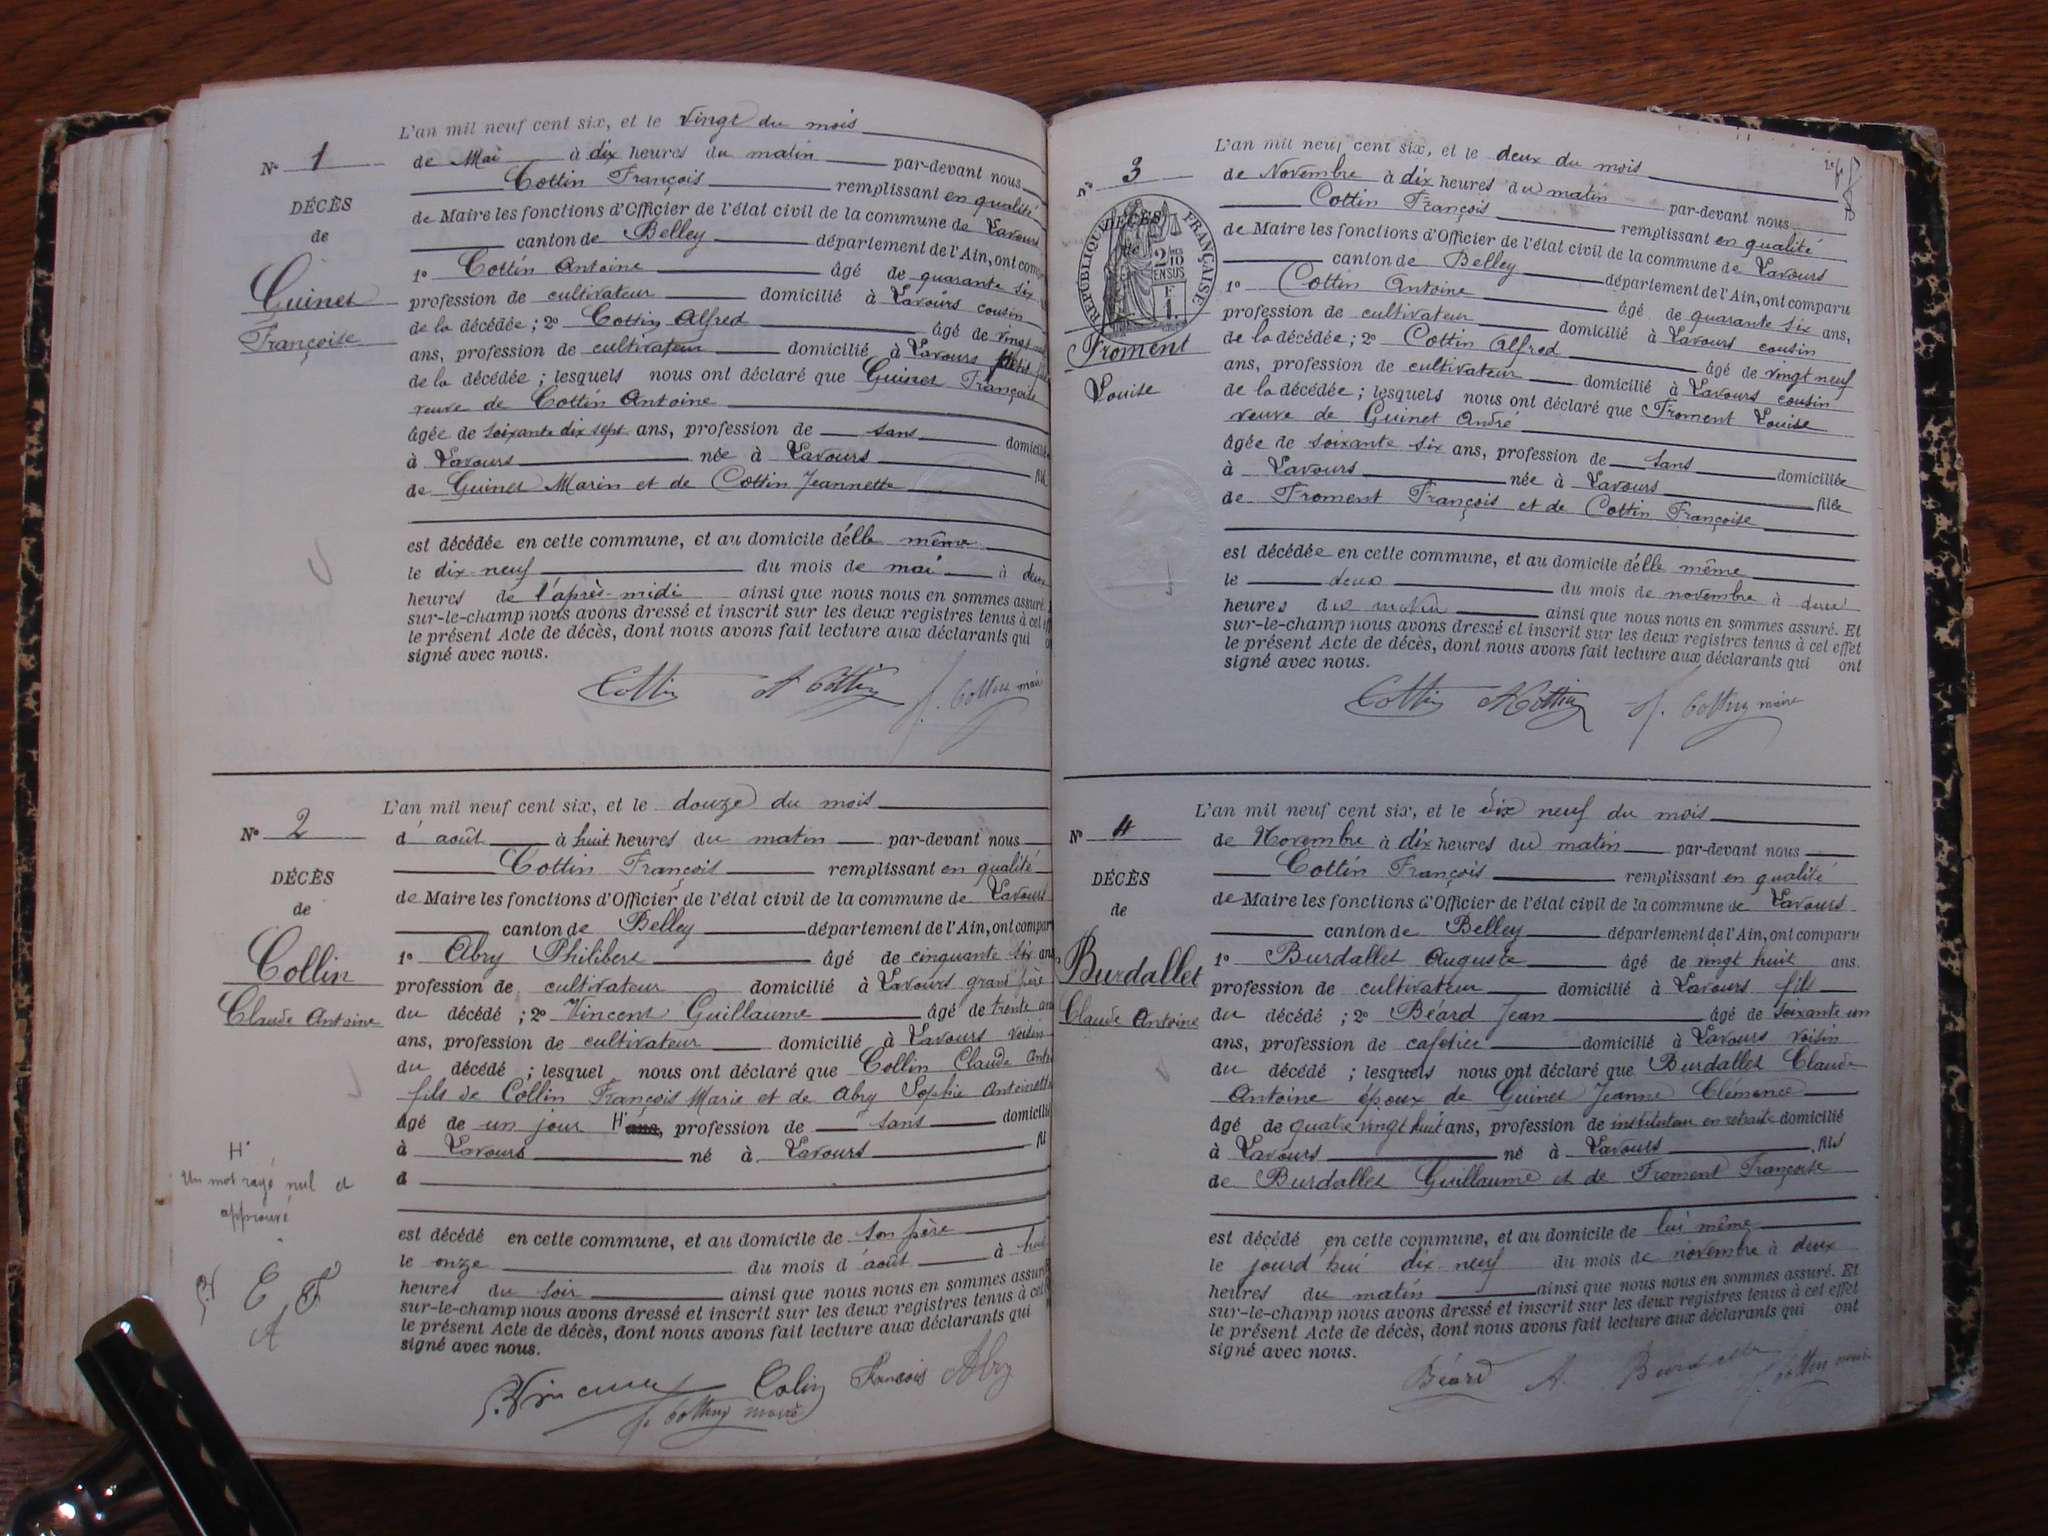 L'an mil neuf cent six, et le vingt du mois
N° 1
de Mai à dix heures du matin par-devant nous
Cottin François remplissant en qualité
DÉCÈS
de Maire les fonctions d'Officier de l'état civil de la commune de Lavours
de
canton de Belley département de l'Ain, ont comp
Guinet
1° Cottin Antoine âgé de quarante six
profession de cultivateur domicilié à Lavours cousin
Françoise
de la décédée ; 2° Cottin Alfred âgé de vingt
ans, profession de cultivateur domicilié à Lavours petit
de la décédée ; lesquels nous ont déclaré que Guinet Françoise
veuve de Cottin Antoine
âgée de soixante dix sept ans, profession de sans domicilié
à Lavours née à Lavours fil
de Guinet Marin et de Cottin Jeannette
est décédée en cette commune, et au domicile d'elle même
le dix-neuf du mois de mai à deux
heures de l'après-midi ainsi que nous nous en sommes assuré
sur-le-champ nous avons dressé et inscrit sur les deux registres tenus à cet eff
le présent Acte de décès, dont nous avons fait lecture aux déclarants qui o
signé avec nous.
Cottin A Cottin f. Cottin maire
L'an mil neuf cent six, et le douze du mois
N° 2
d' août à huit heures du matin par-devant nous
Cottin François remplissant en qualité
DÉCÈS
de Maire les fonctions d'Officier de l'état civil de la commune de Lavours
de
canton de Belley département de l'Ain, ont compar
Collin
1° Abry Philibert âgé de cinquante six ans
profession de cultivateur domicilié à Lavours grand père
Claude Antoine
du décédé ; 2° Vincent Guillaume âgé de trente ans
ans, profession de cultivateur domicilié à Lavours voisin
du décédé ; lesquel nous ont déclaré que Collin Claude Ant
fils de Collin François Marie et de Abry Sophie Antoinette
âgé de un jour H' ans, profession de sans domicilié
à Lavours né à Lavours fil
d
H'
Un mot rayé nul et
approuvé
est décédé en cette commune, et au domicile de son père
le onze du mois d'août à huit
heures du soir ainsi que nous nous en sommes assuré
sur-le-champ nous avons dressé et inscrit sur les deux registres tenus à cet
le présent Acte de décès, dont nous avons fait lecture aux déclarants qui
signé avec nous.
E F
A
Vincent Colin François Abry
f. Cottin maire
L'an mil neuf cent six, et le deux du mois
N° 3
de Novembre à dix heures du matin par-devant nous
Cottin François remplissant en qualité
DÉCÈS
de
RÉPUBLIQUE FRANÇAISE
2 10
EN SUS
F
1.
de Maire les fonctions d'Officier de l'état civil de la commune de Lavours
canton de Belley département de l'Ain, ont comparu
1° Cottin Antoine âgé de quarante six ans,
profession de cultivateur domicilié à Lavours cousin
Froment
de la décédée ; 2° Cottin Alfred âgé de vingt neuf
ans, profession de cultivateur domicilié à Lavours cousin
Louise
de la décédée ; lesquels nous ont déclaré que Froment Louise
veuve de Guinet André
âgée de soixante six ans, profession de sans domiciliée
à Lavours née à Lavours fille
de Froment François et de Cottin Françoise
est décédée en cette commune, et au domicile d'elle même
le deux du mois de novembre à deux
heures du matin ainsi que nous nous en sommes assuré. Et
sur-le-champ nous avons dressé et inscrit sur les deux registres tenus à cet effet
le présent Acte de décès, dont nous avons fait lecture aux déclarants qui ont
signé avec nous.
Cottin A Cottin f. Cottin maire
L'an mil neuf cent six, et le dix neuf du mois
N° 4
de Novembre à dix heures du matin par-devant nous
Cottin François remplissant en qualité
DÉCÈS
de Maire les fonctions d'Officier de l'état civil de la commune de Lavours
de
canton de Belley département de l'Ain, ont comparu
Burdallet
1° Burdallet Auguste âgé de vingt huit ans.
profession de cultivateur domicilié à Lavours fils
Claude Antoine
du décédé ; 2° Béard Jean âgé de soixante un
ans, profession de cafetier domicilié à Lavours voisin
du décédé ; lesquels nous ont déclaré que Burdallet Claude
Antoine époux de Guinet Jeanne Clémence
âgé de quatre vingt huit ans, profession de instituteur en retraite domicilié
à Lavours né à Lavours fils
de Burdallet Guillaume et de Froment Françoise
est décédé en cette commune, et au domicile de lui même
le jourd'hui dix-neuf du mois de novembre à deux
heures du matin ainsi que nous nous en sommes assuré. Et
sur-le-champ nous avons dressé et inscrit sur les deux registres tenus à cet effet
le présent Acte de décès, dont nous avons fait lecture aux déclarants qui ont
signé avec nous.
Béard A. Burdallet f. Cottin maire